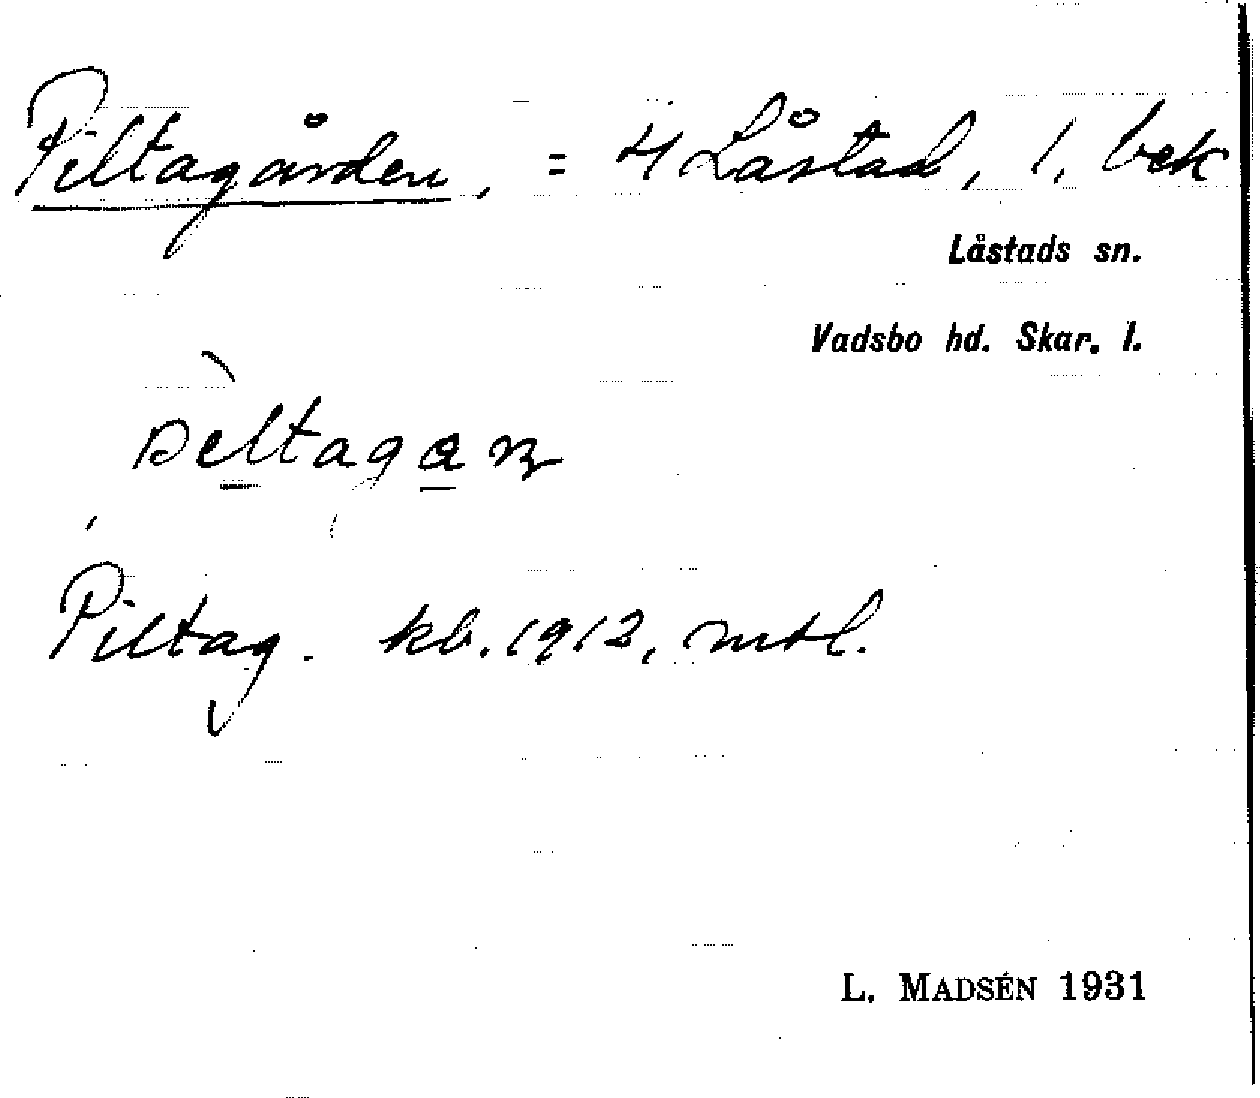 Piltagården, = 4 Låstad, 1. bek
Låstads sn.
Vadsbo hd. Skar. l.
Piltag. kb. 1912, mtl.
L. MADSÉN 1931